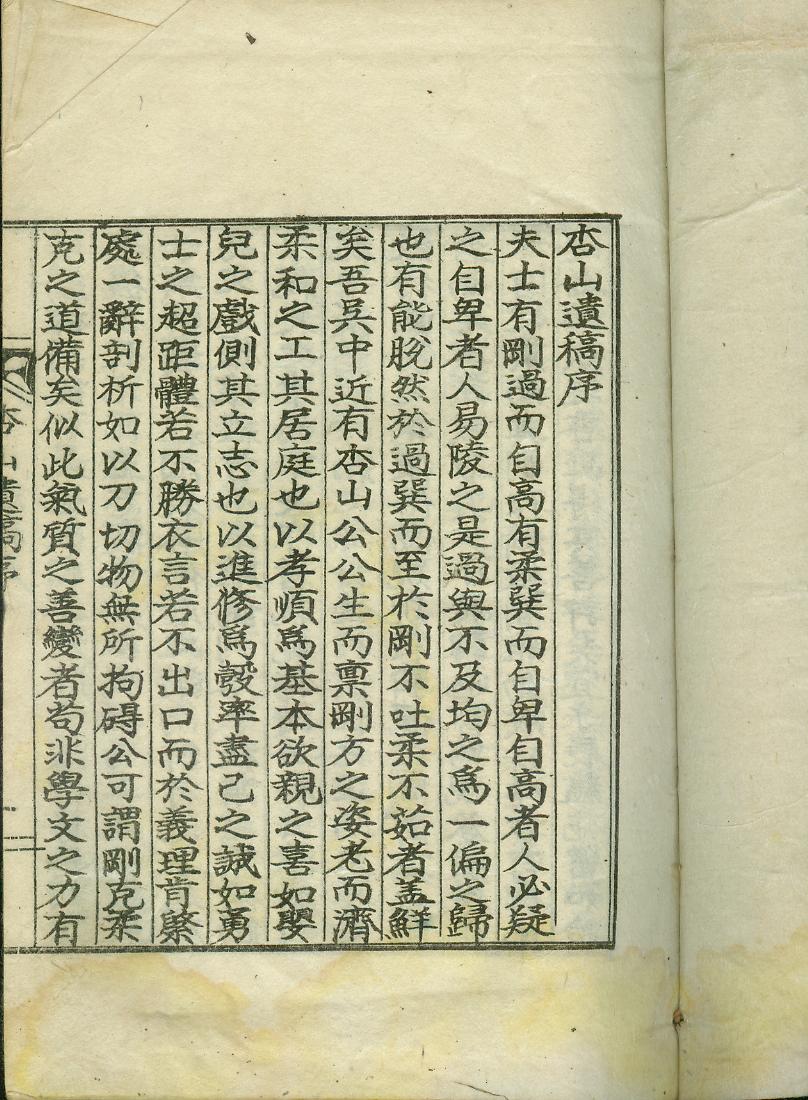 杏山遺稿序
夫士有剛過而自高有柔巽而自卑自高者人必疑
之自卑者人易陵之是過與不及均之爲一偏之歸
也有能脫然於過巽而至於剛不吐柔不茹者盖鮮
矣吾吳中近有杏山公公生而禀剛方之姿老而濟
柔和之工其居庭也以孝順爲基本欲親之喜如嬰
兒之戲側其立志也以進修爲彀率盡己之誠如勇
士之超距體若不勝衣言若不出口而於義理肯綮
處一辭剖析如以刀切物無所拘碍公可謂剛克柔
克之道備矣似此氣質之善變者苟非學文之力有
杏山遺稿序